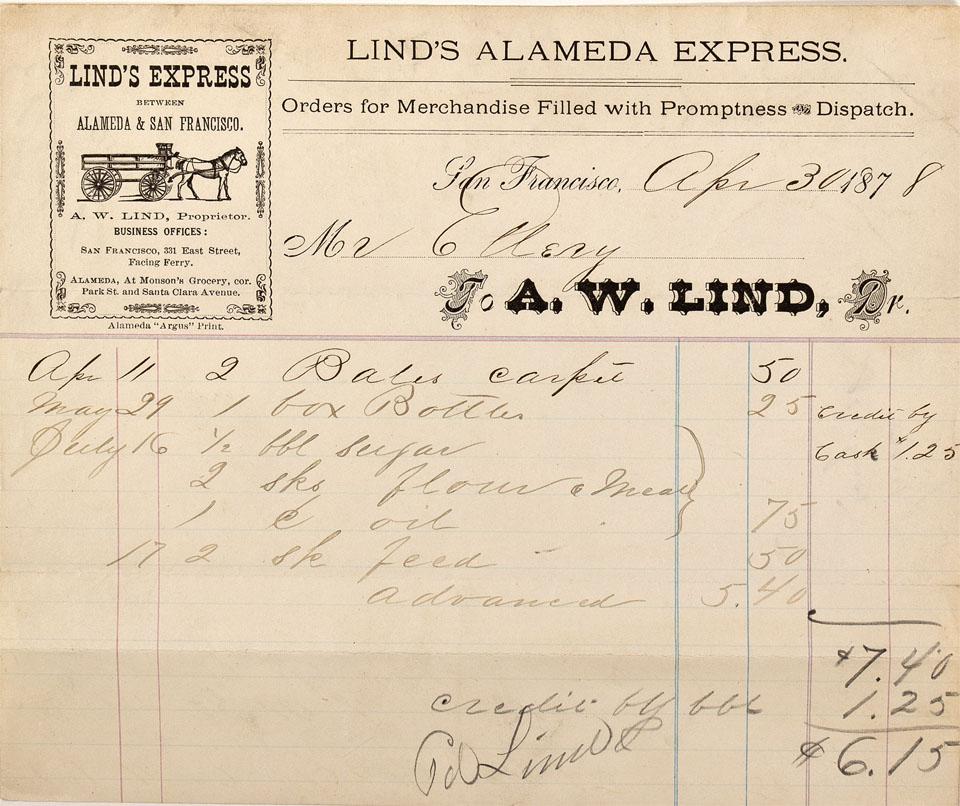 LIND'S EXPRESS
BETWEEN
ALAMEDA & SAN FRANCISCO.
A. W. LIND, Proprietor.
BUSINESS OFFICES:
SAN FRANCISCO, 331 East Street,
Facing Ferry.
ALAMEDA, At Monson's Grocery, cor.
Park St. and Santa Clara Avenue.
Alameda "Argus" Print.
LIND'S ALAMEDA EXPRESS.
Orders for Merchandise Filled with Promptness and Dispatch.
San Francisco, Apr 30 1878
Mr Ellery
To A. W. LIND, Dr.
Apr 11 2 Bales carpet 50
May 29 1 box Bottles 25 credit by
July 16 1/2 bbl sugar Cash $1.25
2 sks flour & Meal
1 c oil 75
17 2 sk feed 50
advanced 5.40
$7.40
credit by bbl 1.25
Pd $6.15